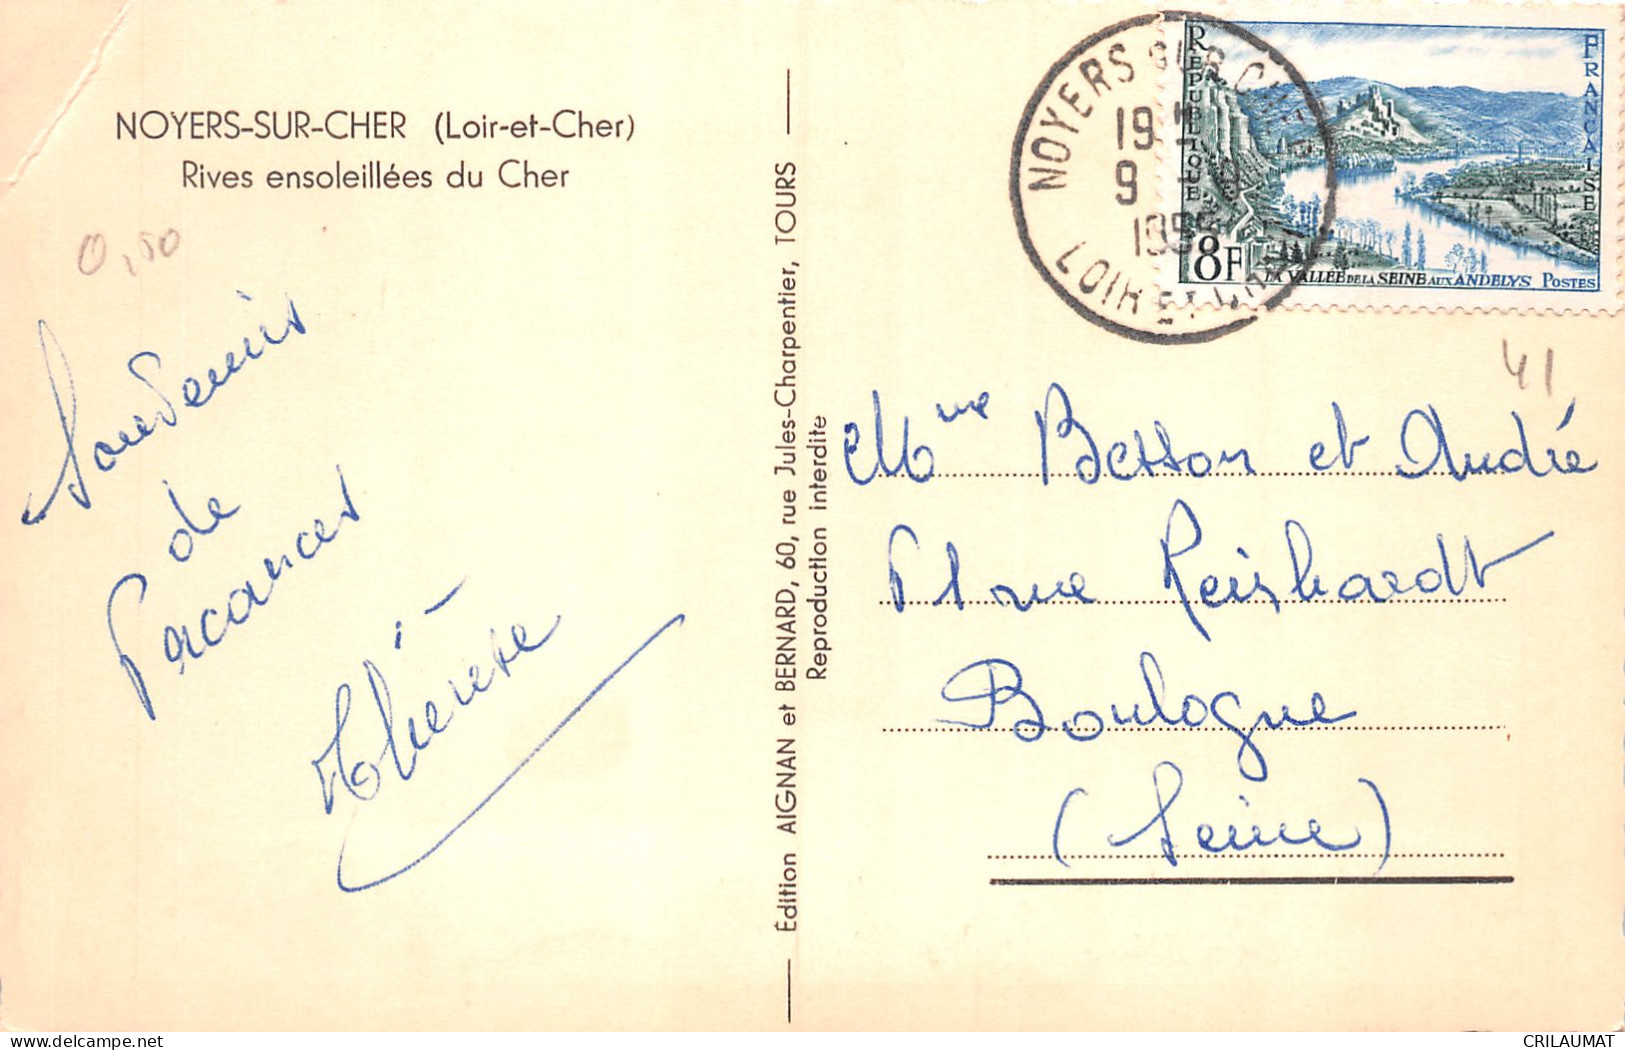 NOYERS-SUR-CHER (Loir-et-Cher)
Rives ensoleillées du Cher
0,50
Souvenirs
de
Vacances
Thérèse
Édition AIGNAN et BERNARD, 60, rue Jules-Charpentier, TOURS
Reproduction interdite
NOYERS SUR CHER
19 H
9
LOIR ET CHER
RÉPUBLIQUE
FRANÇAISE
8F
LA VALLÉE DE LA SEINE AUX ANDELYS POSTES
41
Mme Besson et André
rue Reishardt
Boulogne
(Seine)
delcampe.net
CRILAUMAT